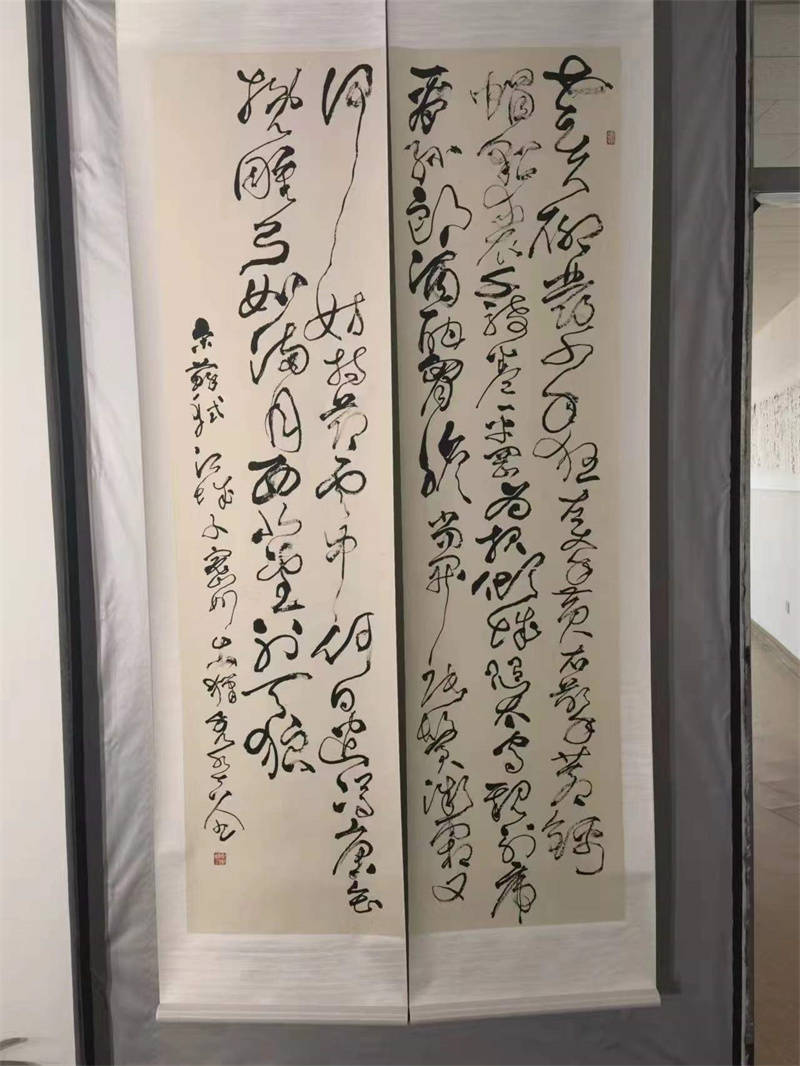 老夫聊發少年狂左牽黃右擎蒼錦
帽貂裘千騎卷平岡為報傾城隨太守親射虎
看孫郎酒酣胸膽尚開張鬢微霜又
何妨持節雲中何日遣馮唐會
挽雕弓如滿月西北望射天狼
宋蘇軾江城子密州出獵